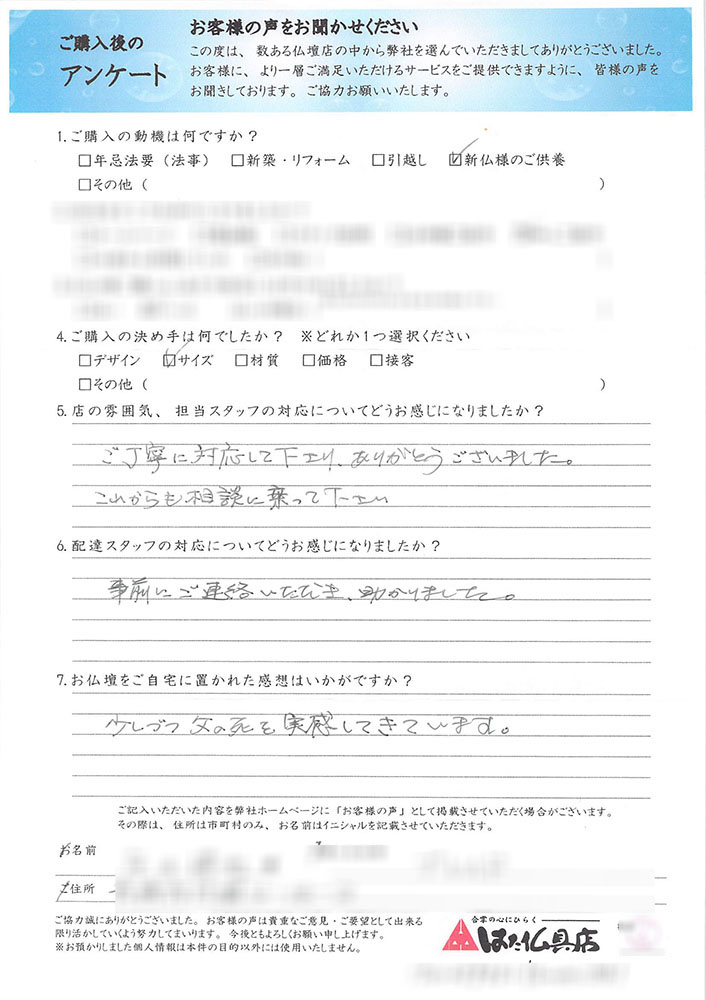 ご購入後の
アンケート
お客様の声をお聞かせください
この度は、数ある仏壇店の中から弊社を選んでいただきましてありがとうございました。
お客様に、より一層ご満足いただけるサービスをご提供できますように、皆様の声を
お聞きしております。ご協力お願いいたします。
1.ご購入の動機は何ですか？
□年忌法要（法事） □新築・リフォーム □引越し ☑新仏様のご供養
□その他（ ）
4.ご購入の決め手は何でしたか？ ※どれか1つ選択ください
□デザイン ☑サイズ □材質 □価格 □接客
□その他（ ）
5.店の雰囲気、担当スタッフの対応についてどうお感じになりましたか？
ご丁寧に対応して下さり、ありがとうございました。
これからも相談に乗って下さい
6.配達スタッフの対応についてどうお感じになりましたか？
事前にご連絡いただき、助かりました。
7.お仏壇をご自宅に置かれた感想はいかがですか？
少しづつ父の死を実感してきています。
ご記入いただいた内容を弊社ホームページに「お客様の声」として掲載させていただく場合がございます。
その際は、住所は市町村のみ、お名前はイニシャルを記載させていただきます。
お名前
ご住所
ご協力誠にありがとうございました。お客様の声は貴重なご意見・ご要望として出来る
限り活かしていくよう努力してまいります。今後ともよろしくお願い申し上げます。
※お預かりしました個人情報は本件の目的以外には使用いたしません。
合掌の心にひらく
はた仏具店